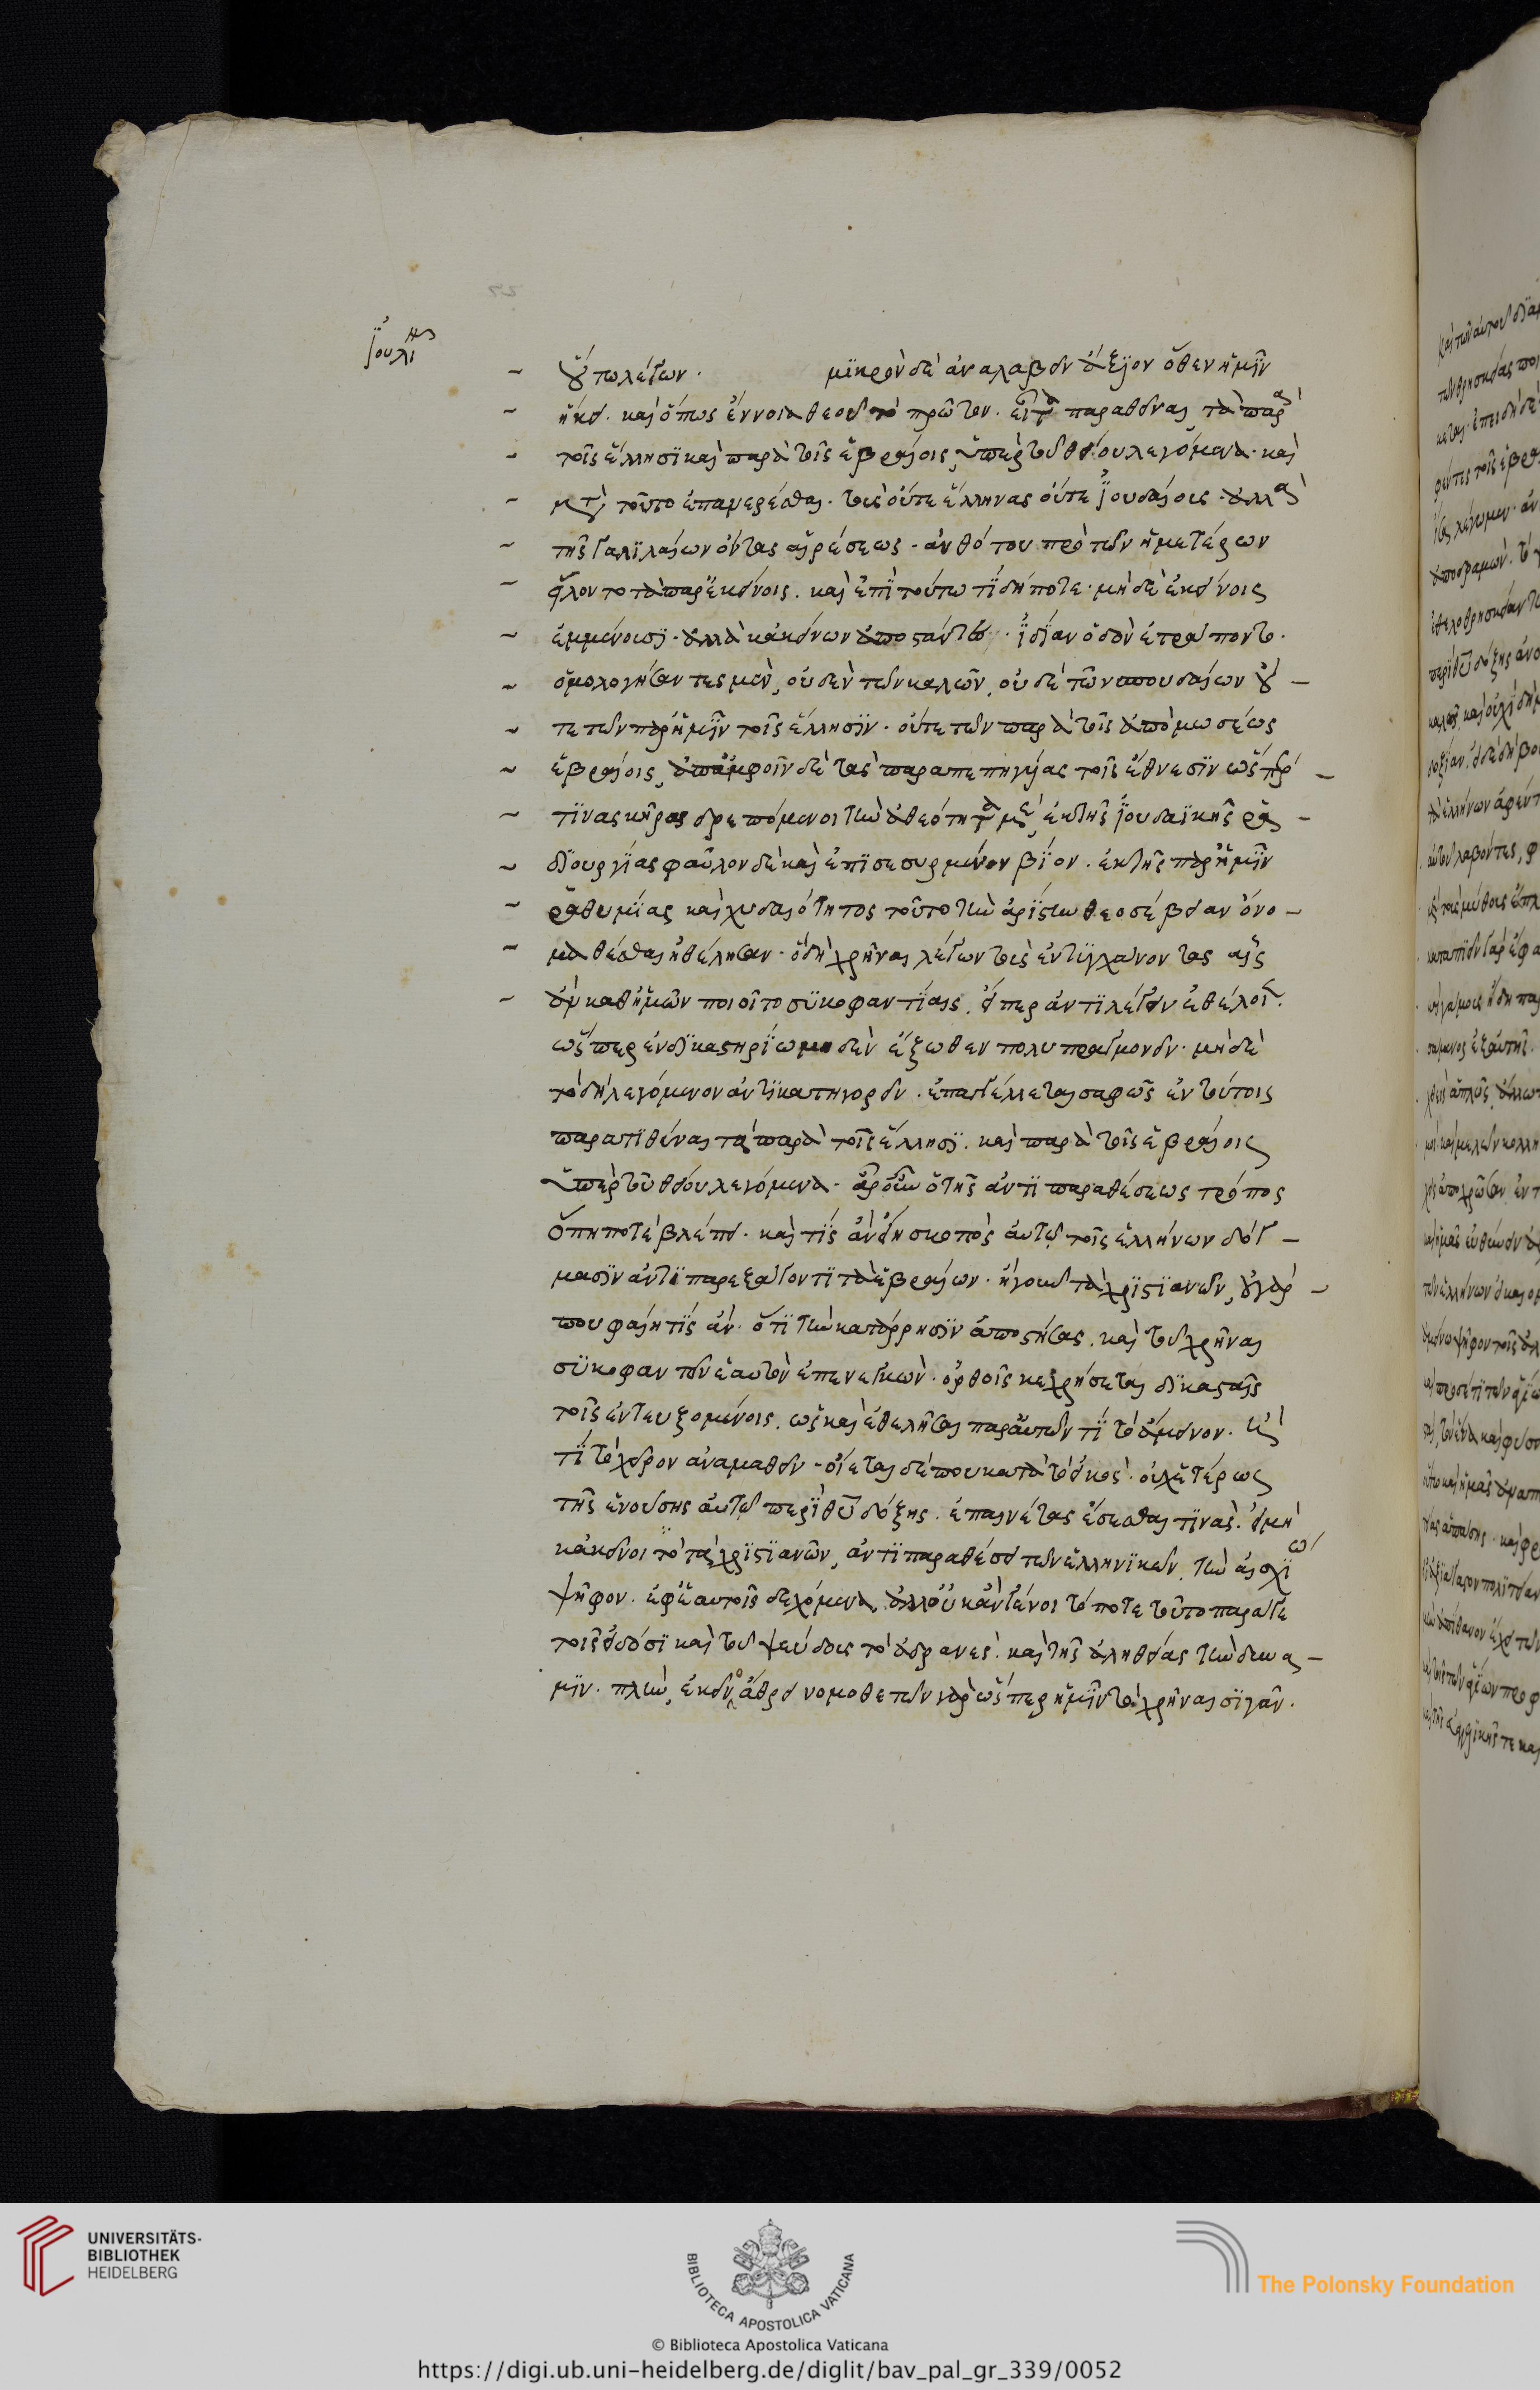 Ἰουλι
οὕτω λέγων. μικρὸν δὲ ἀναλαβεῖν ἄξιον ὅθεν ἡμῖν
ἥκει. καὶ ὅπως ἔννοια θεοῦ τὸ πρῶτον. εἶτα παραθεῖναι τὰ παρὰ
τοῖς ἕλλησι καὶ παρὰ τοῖς ἑβραίοις, ὑπὲρ τοῦ θείου λεγόμενα. καὶ
μετὰ τοῦτο ἐπανερέσθαι. τοὺς οὔτε ἕλληνας οὔτε ἰουδαίους. ἀλλὰ
τῆς γαλιλαίων ὄντας αἱρέσεως. ἀνθότου πρὸ τῶν ἡμετέρων
εἵλοντο τὰ παρ' ἐκείνοις. καὶ ἐπὶ τούτω τί δήποτε. μὴ δὲ ἐκείνοις
ἐμμένουσι. ἀλλὰ κἀκείνων ἀποστάντες. ἰδίαν ὁδὸν ἐτράποντο.
ὁμολογήσαντες μὲν, οὐδὲν τῶν καλῶν, οὐδὲ τῶν σπουδαίων οὔ-
τε τῶν παρ' ἡμῖν τοῖς ἕλλησιν. οὔτε τῶν παρὰ τοῖς ἀπὸ μωσέως
ἑβραίοις, ἀπ' ἀμφοῖν δὲ τὰς παραπεπηγυίας τοῖς ἔθνεσιν ὥσπερ
τινας κῆρας δρεπόμενοι τὴν ἀθεότητα μὲν, ἐκ τῆς ἰουδαϊκῆς ῥα-
διουργίας φαῦλον δὲ καὶ ἐπισεσυρμένον βίον. ἐκ τῆς παρ' ἡμῖν
ῥαθυμίας καὶ χυδαιότητος τοῦτο τὴν ἀρίστην θεοσέβειαν ὀνο-
μα θέσθαι ἠθέλησαν. ὅδη χρῆναι λέγων τοὺς ἐντυγχάνοντας αἷς
ἂν καθ' ἡμῶν ποιοῖτο συκοφαντίαις. εἴπερ ἀντιλέγειν ἐθέλοι.
ὥσπερ ἐν δικαστηρίω μηδὲν ἔξωθεν πολυπραγμονεῖν. μὴ δὲ
τὸ δὴ λεγόμενον ἀντικατηγορεῖν. ἐπαγγέλλεται σαφῶς ἐν τούτοις
παρατιθέναι τὰ παρὰ τοῖς ἕλλησι. καὶ παρὰ τοῖς ἑβραίοις
ὑπὲρ τοῦ θείου λεγόμενα. ἆρ' οὖν ὁ τῆς ἀντιπαραθέσεως τρόπος
ὅπη ποτὲ βλέπει. καὶ τίς ἂν εἴη σκοπὸς αὐτῶ τοῖς ἑλλήνων δόγ-
μασιν ἀντιπαρεξάγοντι τὰ ἑβραίων. ἤγουν τὰ χριστιανῶν, οὐ γάρ
που φαίη τίς ἄν. ὅτι τὴν κατάρρησιν ἀποστήσας. καὶ τοῦ χρῆναι
συκοφαντεῖν ἑαυτὸν ἀπενεγκὼν. ὀρθοῖς κεχρήσεται δικασταῖς
τοῖς ἐντευξομένοις. ὡς καὶ ἐθελῆσαι παρ' αὐτῶν τί τὸ ἄμεινον. καὶ
τί τὸ χεῖρον ἀναμαθεῖν. οἴεται δέ που κατὰ τὸ εἰκὸς. οὐχ ἑτέρως
τῆς ἐνούσης αὐτῶ περὶ θεοῦ δόξης. ἐπαινέτας ἔσεσθαι τινὰς. εἰ μὴ
κἀκεῖνοι τὸ τὰ χριστιανῶν, ἀντιπαραθέσει τῶν ἑλληνικῶν, τὴν αἰσχίω
ψῆφον. ἐφ' ἑαυτοῖς δεχόμενα. ἀλλ' οὐκ ἂν γένοιτό ποτε τοῦτο παρά γε
τοῖς εἰδόσι καὶ τοῦ ψεύδους τὸ ἀδρανὲς. καὶ τῆς ἀληθείας τὴν δύνα-
μιν. πλὴν, ἐκεῖνο ἄθρει νομοθετῶν γὰρ ὥσπερ ἡμῖν τὸ χρῆναι σιγᾶν.
UNIVERSITÄTS-
BIBLIOTHEK
HEIDELBERG
BIBLIOTECA APOSTOLICA VATICANA
The Polonsky Foundation
© Biblioteca Apostolica Vaticana
https://digi.ub.uni-heidelberg.de/diglit/bav_pal_gr_339/0052